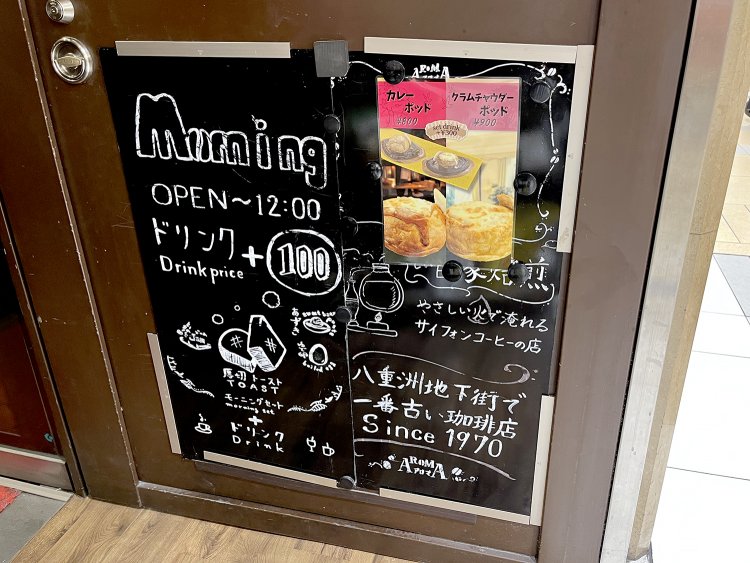 Morning
OPEN～12:00
ドリンク+100
Drink price
Jam
あずき
sweet bean
玉子
boiled egg
厚切トースト
TOAST
モーニングセット
morning set
+
ドリンク
Drink
AROMA
カレー
ポット
¥800
クラムチャウダー
ポット
¥900
set drink
+¥300
自家焙煎
やさしい火で淹れる
サイフォンコーヒーの店
八重洲地下街で
一番古い珈琲店
Since 1970
AROMA
アロマ